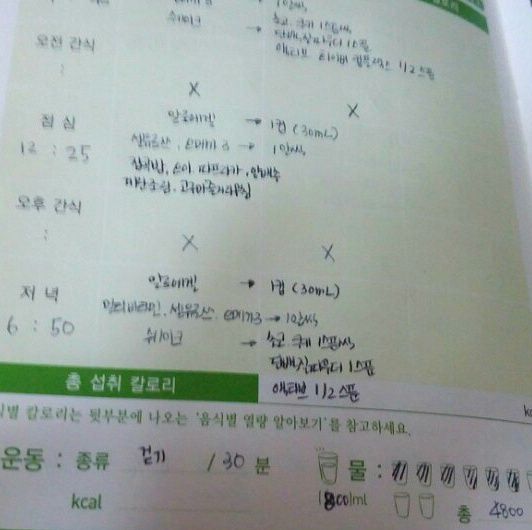 1알씩
쉐이크 → 초코, 쿠키 1스푼씩
단백질파우더 1스푼
액티브 화이버 컴플렉스 1/2스푼
오전 간식
:
X X
점심
12 : 25
알로에겔 → 1컵 (30mL)
셀루로쓰, 오메가3 → 1알씩
잡곡밥,
계란조림, 고구마줄기
오후 간식
:
X X
저녁
6 : 50
알로에겔 → 1컵 (30mL)
멀티비타민, 셀루로쓰, 오메가3 → 1알씩
쉐이크 → 초코, 쿠키 1스푼씩
단백질파우더 1스푼
액티브 1/2스푼
총 섭취 칼로리
식별 칼로리는 뒷부분에 나오는 '음식별 열량 알아보기'를 참고하세요.
운동 : 종류 걷기 / 30 분
물 :
kcal
총 4800